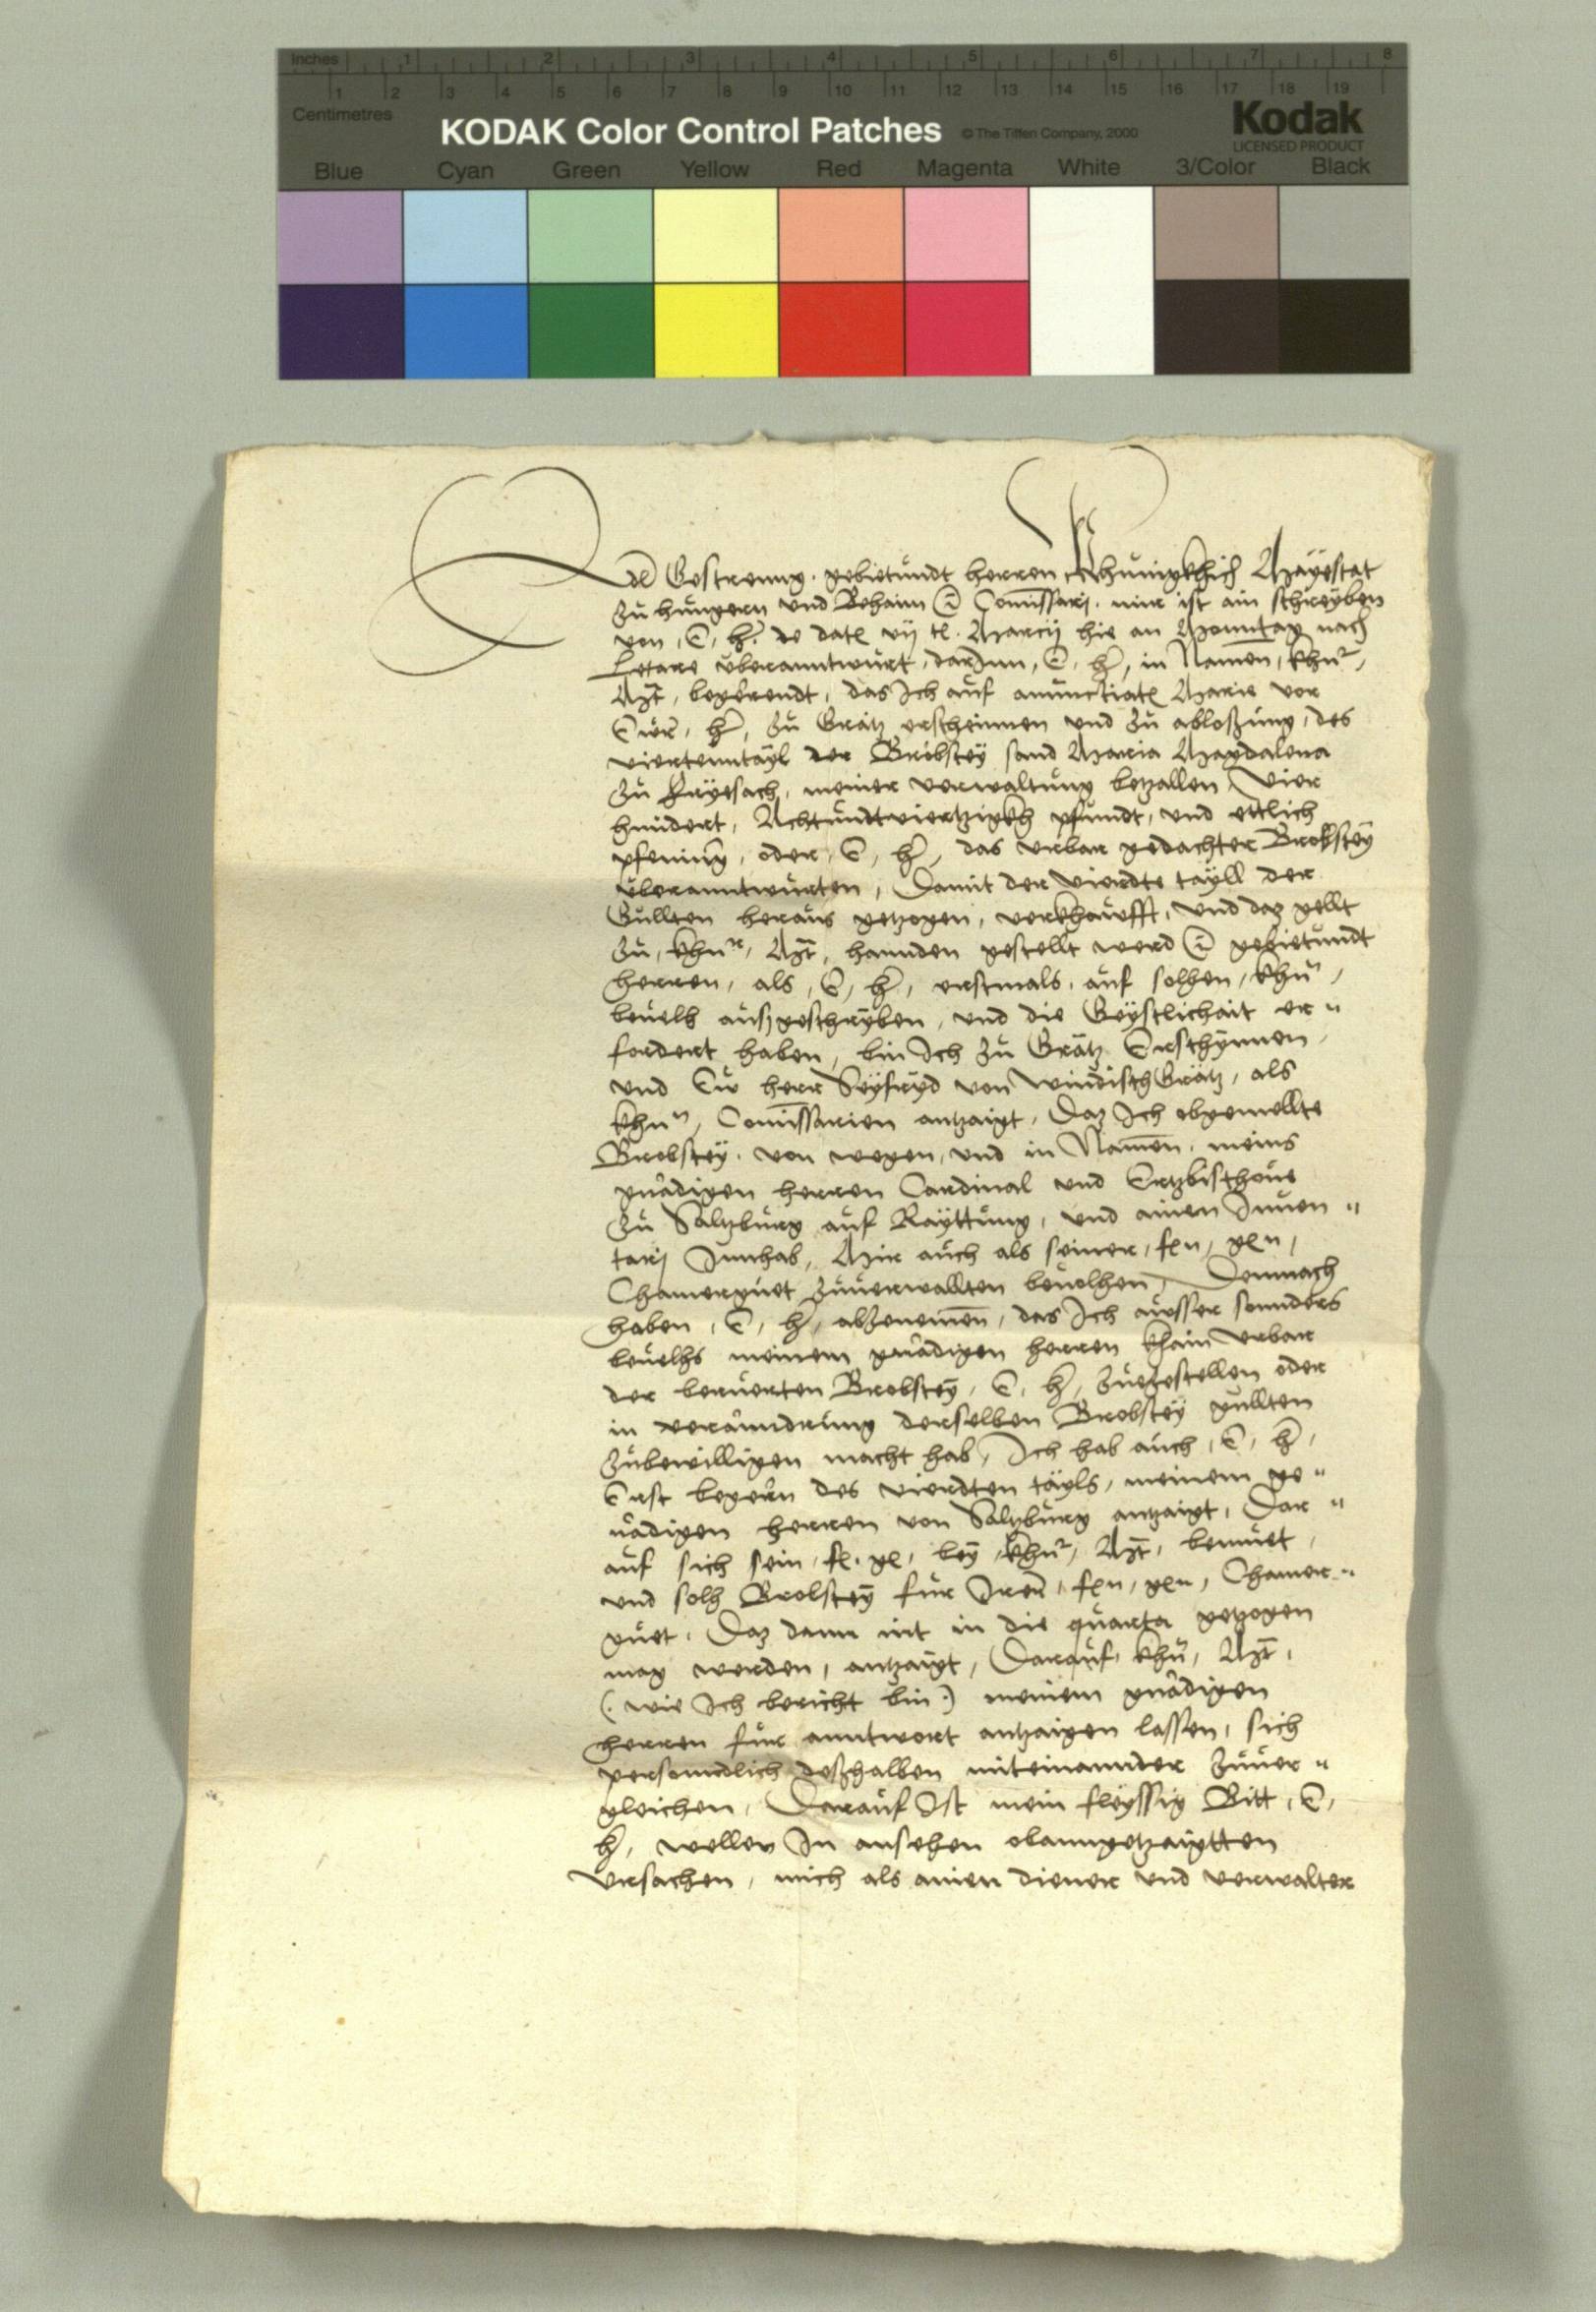 Inches 1 2 3 4 5 6 7 8
1 2 3 4 5 6 7 8 9 10 11 12 13 14 15 16 17 18 19
Centimetres
KODAK Color Control Patches © The Tiffen Company, 2000 Kodak
LICENSED PRODUCT
Blue Cyan Green Yellow Red Magenta White 3/Color Black
Edl Gestreng, gebietundt herren Khunigklich Mayestat
zu hungern und Behaim Comissarj. mir ist ain schreyben
von, E, h. de dato Marcij hie an Monntag nach
Letare überanntwurt, darInn, E, h, in Namen, khnr,
Mt, begerendt, das Ich auf anunctiate Marie vor
Eur, h, zu Grätz erscheinnen und zu abloßung, des
viertenntayl der Brobstey sand Maria Magdalena
zu Fryesach, meiner verwaltung betzallen, Vier
hundert, Achtundtviertzigkh pfundt, und ettlich
pfening, oder, E, h, das urbar gedachter Brobstey
überanntwurten, Damit der Vierdte tayll der
Gullten heraus getzogen, verkhaufft, und daz gellt
zu, khnr, Mt, hannden gestellt werd gebietundt
herren, als, E, h, erstmals, auf solhen, khn,
beuelh außgeschryben, und die Geystlichait er"
fordert haben, bin Ich zu Grätz Erschynnen,
und Eu herr Seyfryd von WindischGrätz, als
khn, Comissarien antzaigt, Daz Ich obgemellte
Brobstey, von wegen, und in Namen, meins
gnädigen herren Cardinal und Ertzbischoue
zu Saltzburg auf Rayttung, und ainen Inuen"
tarj Innhab, Mir auch als seiner, fn, gn,
Chamerguet zuuerwallten beuolhen, Demnach
haben, E, h, abzenemen, das Ich ausser sonnders
beuelhs meinem gnädigen herren khain urbar
der beruerten Brobstey, E, h, zuegestellen oder
in verämndrung derselben Brobstey gullten
zubewilligen macht hab, Ich hab auch, E, h,
Erst begern des vierdten tayls, meinem ge"
nädigen herren von Saltzburg antzaigt, Dar"
auf sich sein, f. g, bey, khnr, Mt, bemuet,
und solh Brobstey für Iren, fn, gn, Chamer"
guet, Daz dann nit in die quarta getzogen
mag werden, antzaigt, Darauf, khn, Mt,
(. wie Ich bericht bin .) meinem gnädigen
herren für anntwort antzaigen lassen, sich
personndlich deßhalben miteinannder zuuer"
gleichen, Darauf Ist mein fleyssig Bitt, E,
h, wellen In ansehen obanngetzaigtten
ursachen, mich als ainen diener und verwalter